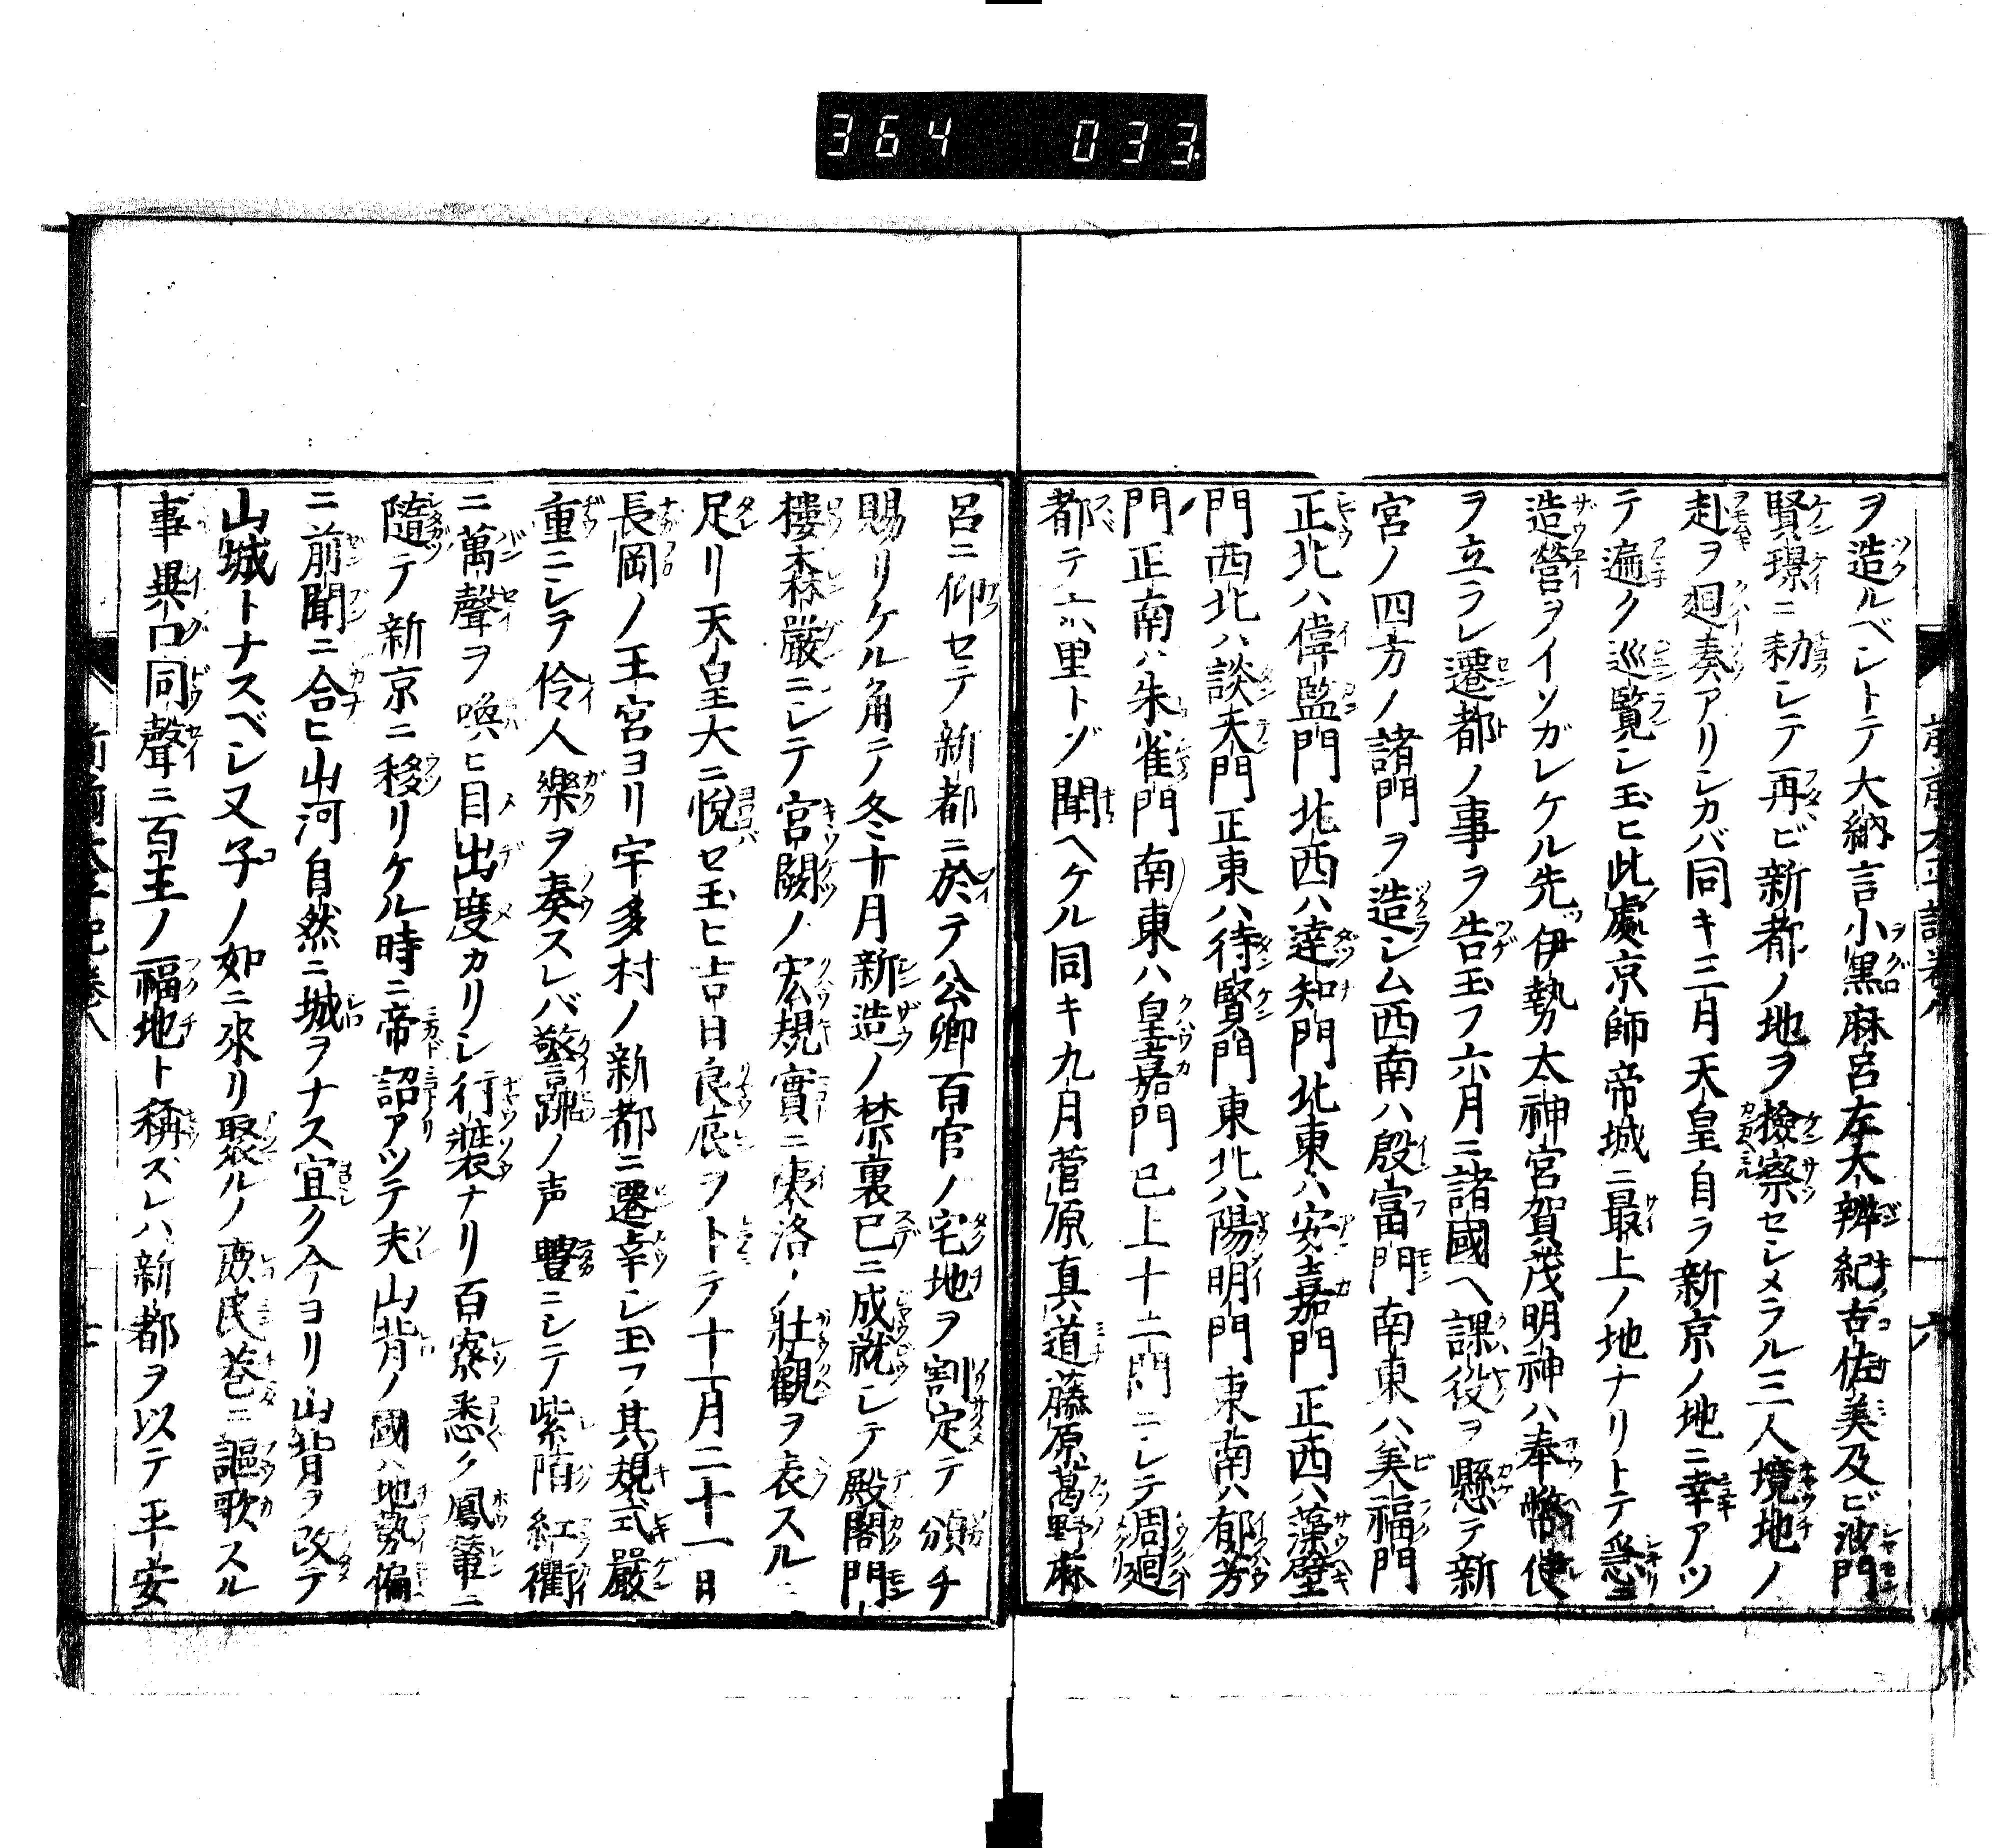 364 033
ヲ造ルベシトテ大納言小黒麻呂左大辨紀古佐美及ビ沙門
賢璟ニ勅シテ再ビ新都ノ地ヲ撿察セシメラル三人境地ノ
赴ヲ廻奏アリシカバ同キ三月天皇自ラ新京ノ地ニ幸アツ
テ遍ク巡覧シ玉ヒ此處京師帝城ニ最上ノ地ナリトテ
造營ヲイソガレケル先伊勢太神宮賀茂明神ハ奉幣使
ヲ立ラレ遷都ノ事ヲ告玉フ六月ニ諸國ヘ課役ヲ懸テ新
宮ノ四方ノ諸門ヲ造シム西南ハ殷富門南東ハ美福門
正北ハ偉監門北西ハ達知門北東ハ安嘉門正西ハ藻壁
門西北ハ談天門正東ハ待賢門東北ハ陽明門東南ハ郁芳
門正南ハ朱雀門南東ハ皇嘉門已上十二門ニシテ周廻
都テ六里トゾ聞ヘケル同キ九月菅原真道藤原葛野麻
呂ニ仰セテ新都ニ於テ公卿百官ノ宅地ヲ割定テ頒チ
賜リケル角テノ冬十月新造ノ禁裏已ニ成就シテ殿閣門
樓森嚴ニシテ宮闕ノ宏規實ニ洛ノ壯觀ヲ表スルニ
足リ天皇大ニ悦セ玉ヒ吉日良辰ヲトテ十一月二十一日
長岡ノ王宮ヨリ宇多村ノ新都ニ遷幸シ玉フ其規式嚴
重ニシテ伶人樂ヲ奏スレバ警蹕ノ声豊ニシテ紫陌紅衢
ニ萬聲ヲ喚ヒ目出度カリシ行裝ナリ百寮悉ク鳳輦ニ
隨テ新京ニ移リケル時ニ帝詔アツテ夫山背ノ國ハ地勢偏
ニ前聞ニ合ヒ山河自然ニ城ヲナス宜ク今ヨリ山背ヲ改テ
山城トナスベシ又子ノ如ニ來リ聚ルノ民巷ニ謳歌スル
事異口同聲ニ百王ノ福地ト稱ズレハ新都ヲ以テ平安